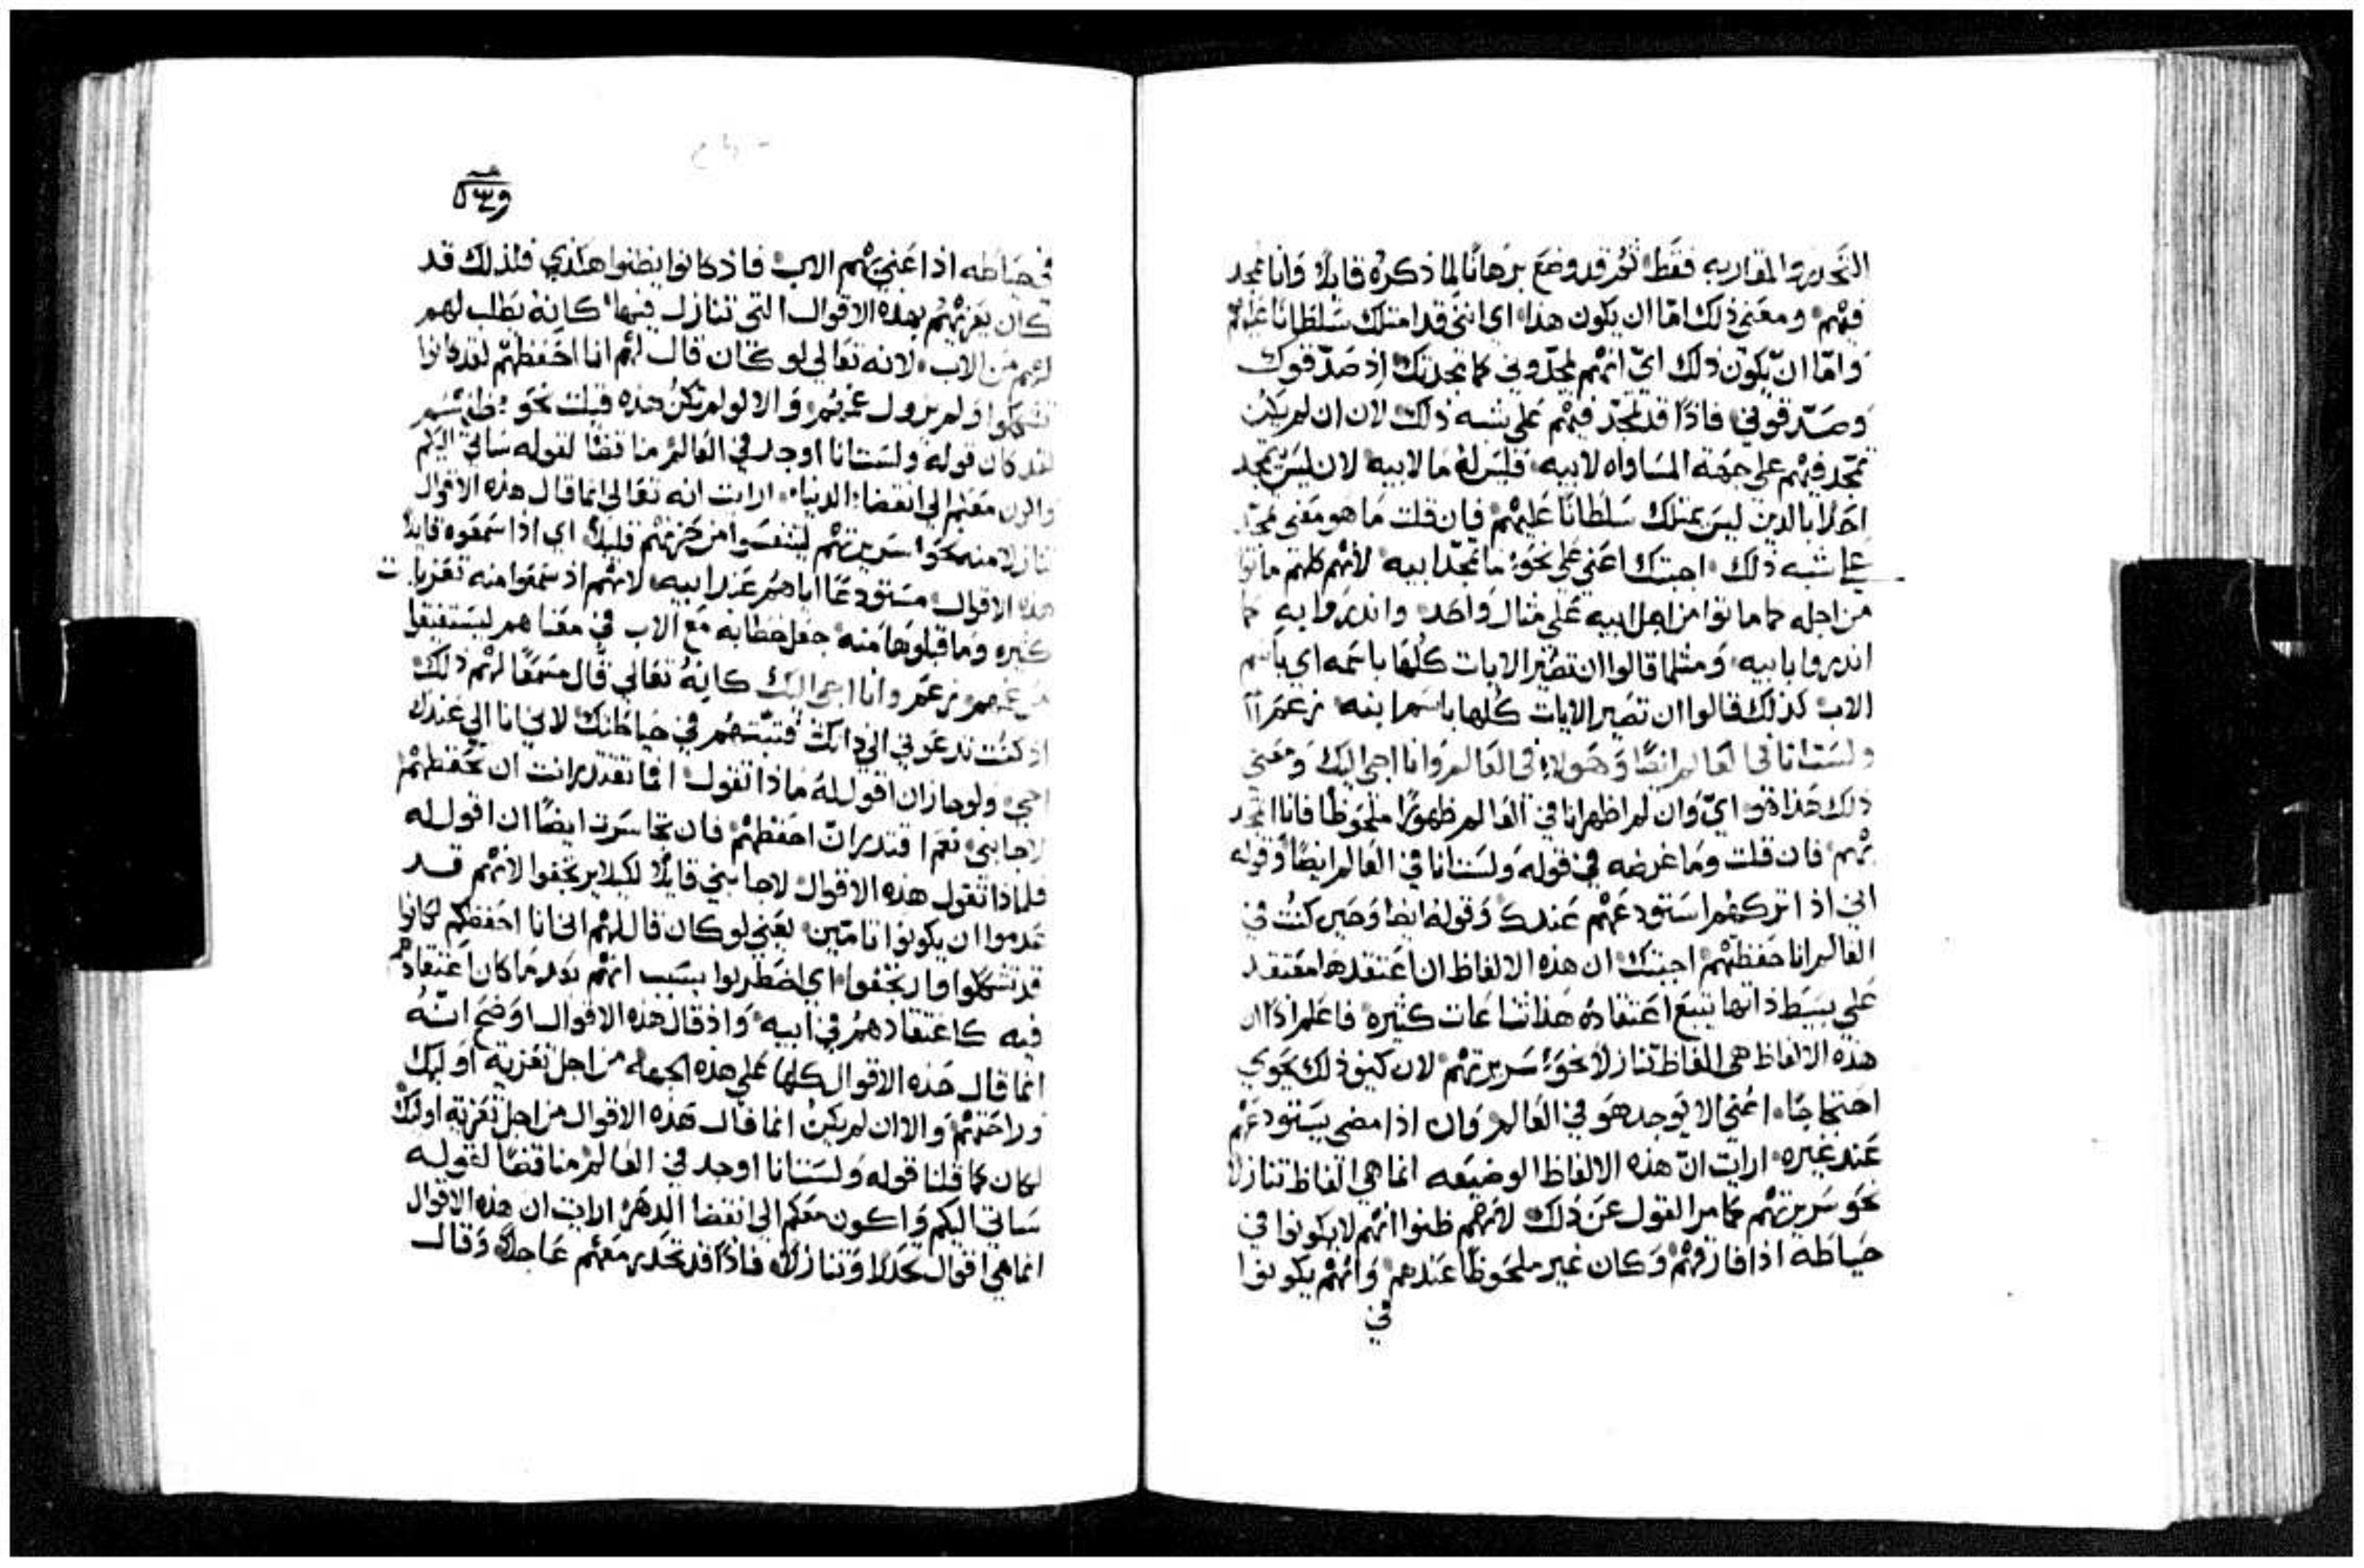 التحدير والمقاربه فقط ثم قد وضع برهانًا لما ذكره قايلا وانا ممجد
فيهم ومعني ذلك امّا ان يكون هذا اي انني قد امتلك سلطانًا عليهم
وامّا ان يكون ذلك ايّ انهم يمجدّوني كما يمجدونك اذ صدّقوك
وصدّقوني فاذًا قد تمجّد فيهم علي شبه ذلك لان ان لم يكن
تمجّد فيهم علي جهة المساواه لابيه فليس له ما لابيه لان ليس يمجد
احدًا بالدين ليس يمتلك سلطانًا عليهم فان قلت ما هو معني تمجّد
علي شبه ذلك اجبتك اعني علي نحو ما تمجّد ابيه لانهم كلهم ماتوا
من اجله كما ماتوا من اجل ابيه علي مثال واحد واندروا به كما
اندروا بابيه ومثلما قالوا ان تصير الايات كلها باسمه اي باسم
الاب كذلك قالوا ان تصير الايات كلها باسم ابنه زعم
ولست انا في العالم ايضًا وهولاء في العالم وانا اجي اليك ومعني
ذلك هذا هو ايّ وان لم اظهر انا في العالم ظهورًا ملحوظًا فانا اتمجد
بهم فان قلت وما غرضه في قوله ولست انا في العالم ايضًا وقوله
اني اذ اتركهم استودعهم عندك وقوله ايضا وحين كنت في
العالم انا حفظتهم اجبتك ان هذه الالفاظ ان اعتقدها معتقد
علي بسيط ذاتها يتبع اعتقاده هذا شناعات كثيره فاعلم اذًا ان
هذه الالفاظ هي الفاظ تنازلاً نحو سريرتهم لان كيف ذلك يحوي
احتجاجًا اعني الا يوجد هو في العالم وان اذا مضي يستودعهم
عند غيره ارايت انّ هذه الالفاظ الوضيعه انما هي الفاظ تنازلا
نحو سريرتهم كما مر القول عن ذلك لانهم ظنوا انهم لا يكونوا في
حياطه اذا فارقهم وكان غير ملحوظًا عندهم وانهم يكونوا
في
في حياطه اذا عني بهم الاب فاذ كانوا يظنوا هكذي فلذلك قد
كان يعزيهم بهذه الاقوال التي تنازل فيها كانه يطلب لهم
لهم من الاب لانه تعالي لو كان قال لهم انا احفظهم لقد كانوا
تشككوا ولم يزول غمهم والا لو لم تكن هذه قيلت نحو ظنهم
لقد كان قوله ولست انا اوجد في العالم مناقضًا لقوله ساتي اليكم
واكون معكم الي انقضا الدنيا ارايت انه تعالي انما قال هذه الاقوال
تنازلا منه نحو سريرتهم ليتنفسوا من حزنهم قليلاً اي اذا سمعوه قايلاً
هذه الاقوال مستودعًا اياهم عند ابيه لانهم اذ سمعوا منه تعزيات
كثيره وما قبلوها منه جعل خطابه مع الاب في معناهم ليستفيقوا
من غمهم زعم وانا اجي اليك كانه تعالي قال مسمعًا لهم ذلك
اذ كنت تدعوني الي ذاتك فتبتهم في حياطتك لاني انا الي عندك
اجي ولو جاز ان اقول له ماذا تقول اما تقتدر انت ان تحفظهم
لاجابني نعم اقتدر ان احفظهم فان تجاسرت ايضًا ان اقول له
فلماذا تقول هذه الاقوال لاجابني قايلاً لكيلا يرتجفوا لانهم قد
عدموا ان يكونوا تامّين يعني لو كان قال لهم اني انا احفظكم لكانوا
قد تشككوا وارتجفوا اي اضطربوا بسبب انهم بعد ما كان اعتقادهم
فيه كاعتقادهم في ابيه واذ قال هذه الاقوال اوضح انّه
انما قال هذه الاقوال كلها علي هذه الجهه من اجل تعزية اوليك
وراحتهم والا ان لم يكن انما قال هذه الاقوال من اجل تعزية اوليك
لكان كما قلنا قوله ولست انا اوجد في العالم مناقضًا لقوله
ساتي اليكم واكون معكم الي انقضا الدهر ارايت ان هذه الاقوال
انما هي اقوال تحدرًا وتنازلاً فاذًا قد تحدر معهم عاجلاً وقال